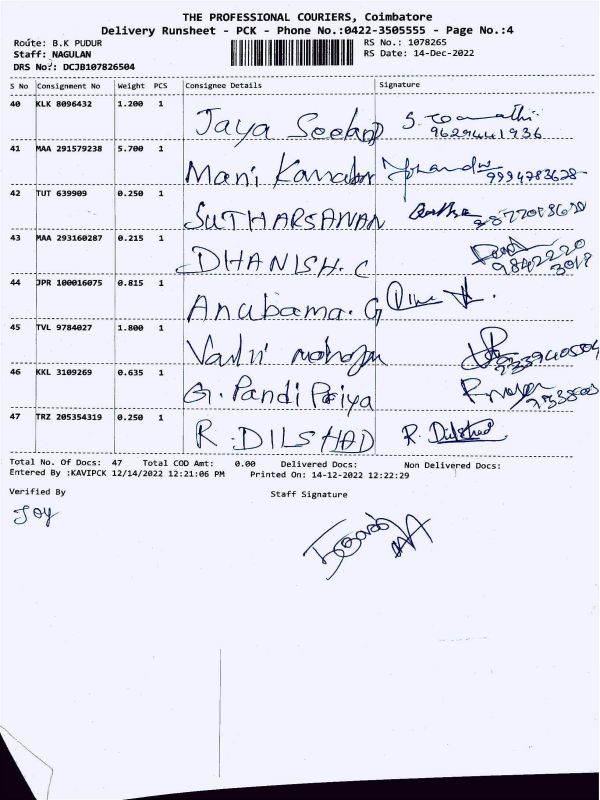 THE PROFESSIONAL COURIERS, Coimbatore
Delivery Runsheet - PCK - Phone No.:0422-3505555 - Page No.:4
Route: B.K PUDUR
RS No.: 1078265
Staff: NAGULAN
RS Date: 14-Dec-2022
DRS No.: DCJB107826504
S No Consignment No Weight PCS Consignee Details Signature
40 KLK 8096432 1.200 1 Jaya
9629441936
41 MAA 291579238 5.700 1 Mani
9994783628
42 TUT 639909 0.250 1 SUTHARSANAN
43 MAA 293160287 0.215 1 DHANISH.C
9842220
3018
44 JPR 100016075 0.815 1 Anubama.G
45 TVL 9784027 1.800 1
46 KKL 3109269 0.635 1 G. Pandi Priya
47 TRZ 205354319 0.250 1 R.DILSHAD R. Dilshad
Total No. Of Docs: 47 Total COD Amt: 0.00 Delivered Docs: Non Delivered Docs:
Entered By :KAVIPCK 12/14/2022 12:21:06 PM Printed On: 14-12-2022 12:22:29
Verified By Staff Signature
Joy